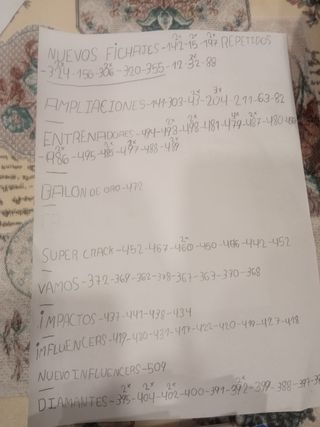 NUEVOS FICHAJES-142-15-197 REPETIDOS
-324-156-306-320-355-12-32-88
AMPLIACIONES-141-303-47-204-211-63-82
ENTRENADORES-494-493-498-481-479-487-480-490
-486-495-485-497-488-489
BALON DE ORO-472
SUPER CRACK-452-467-460-450-446-442-452
VAMOS-372-369-362-378-367-363-370-368
IMPACTOS-437-441-438-434
INFLUENCERS-419-430-431-417-422-420-419-427-418
NUEVO INFLUENCERS-509
DIAMANTES-395-404-402-400-391-392-399-388-397